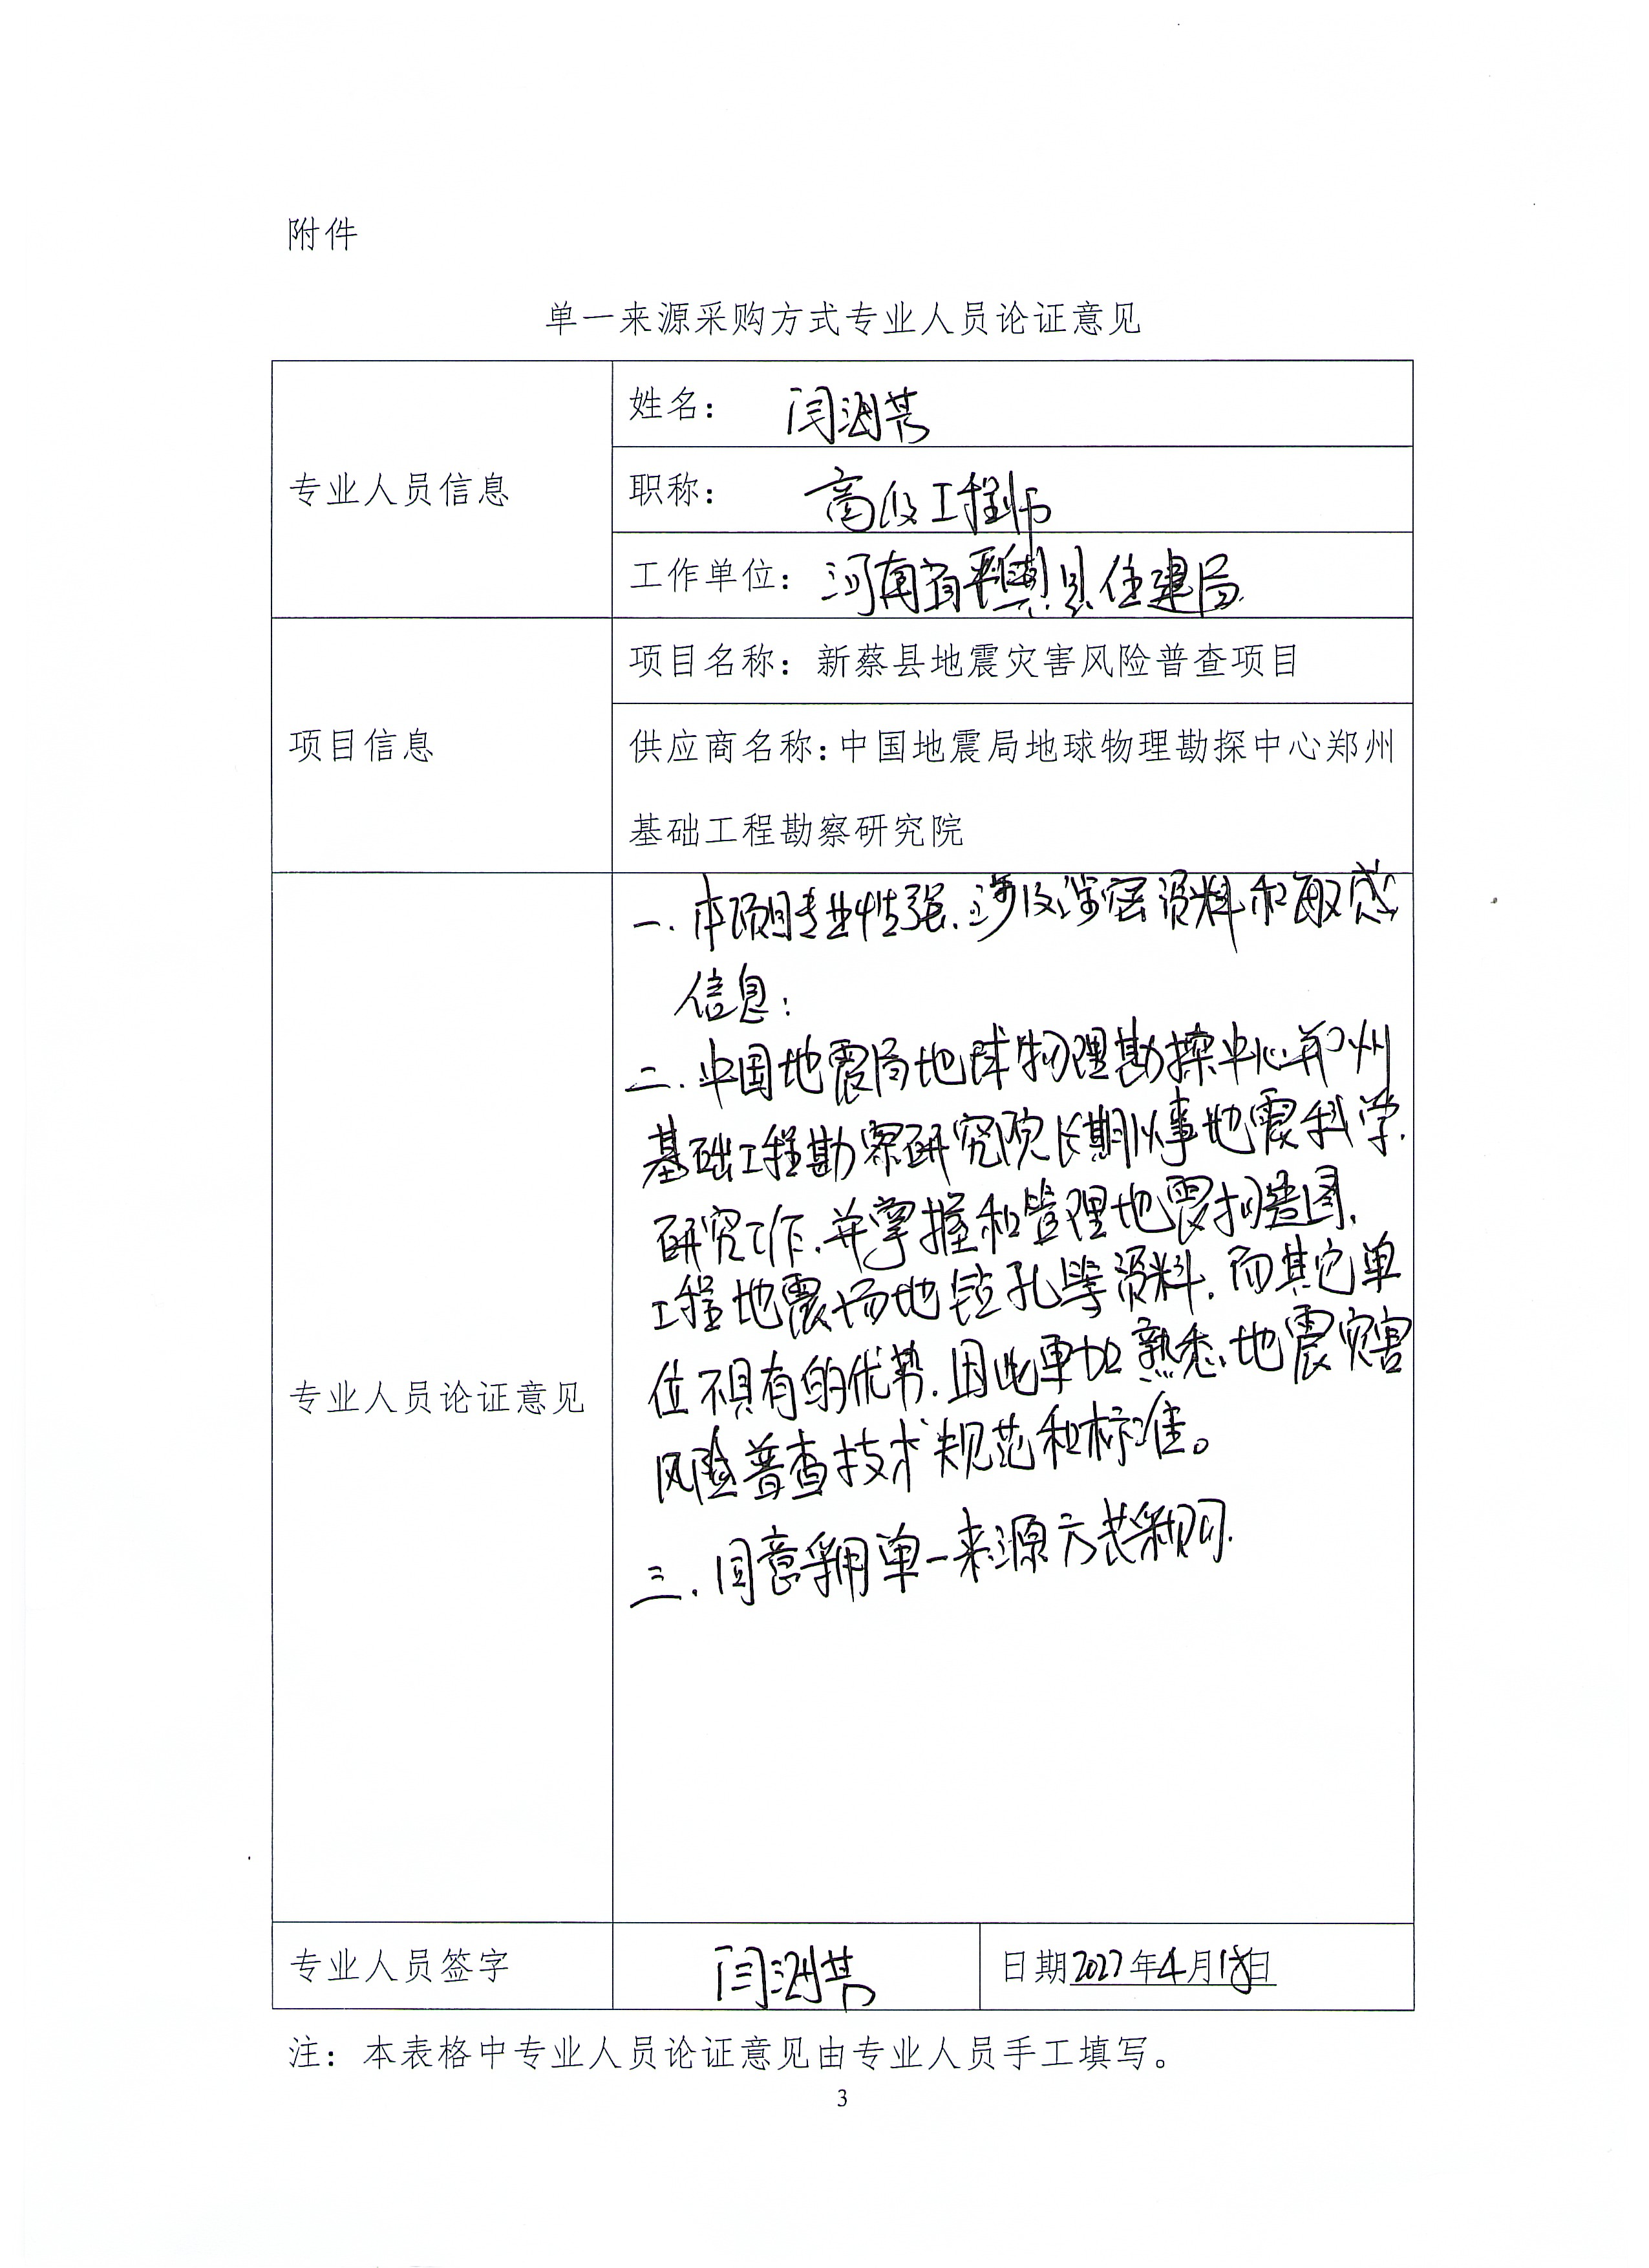 附件
单一来源采购方式专业人员论证意见
专业人员信息
姓名： 闫
职称： 高级工程师
工作单位：河南省平舆县住建局.
项目信息
项目名称：新蔡县地震灾害风险普查项目
供应商名称：中国地震局地球物理勘探中心郑州
基础工程勘察研究院
专业人员论证意见
一.本项目专业性强.涉及涉密资料和敏感
信息：
二.中国地震局地球物理勘探中心郑州
基础工程勘察研究院长期从事地震科学.
研究工作.并掌握和管理地震构造图.
工程地震场地钻孔等资料.而其它单
位不具有的优势.因此更加熟悉.地震灾害
风险普查技术规范和标准。
三.同意采用单一来源方式采购.
专业人员签字
闫
日期2022年4月18日
注：本表格中专业人员论证意见由专业人员手工填写。
3